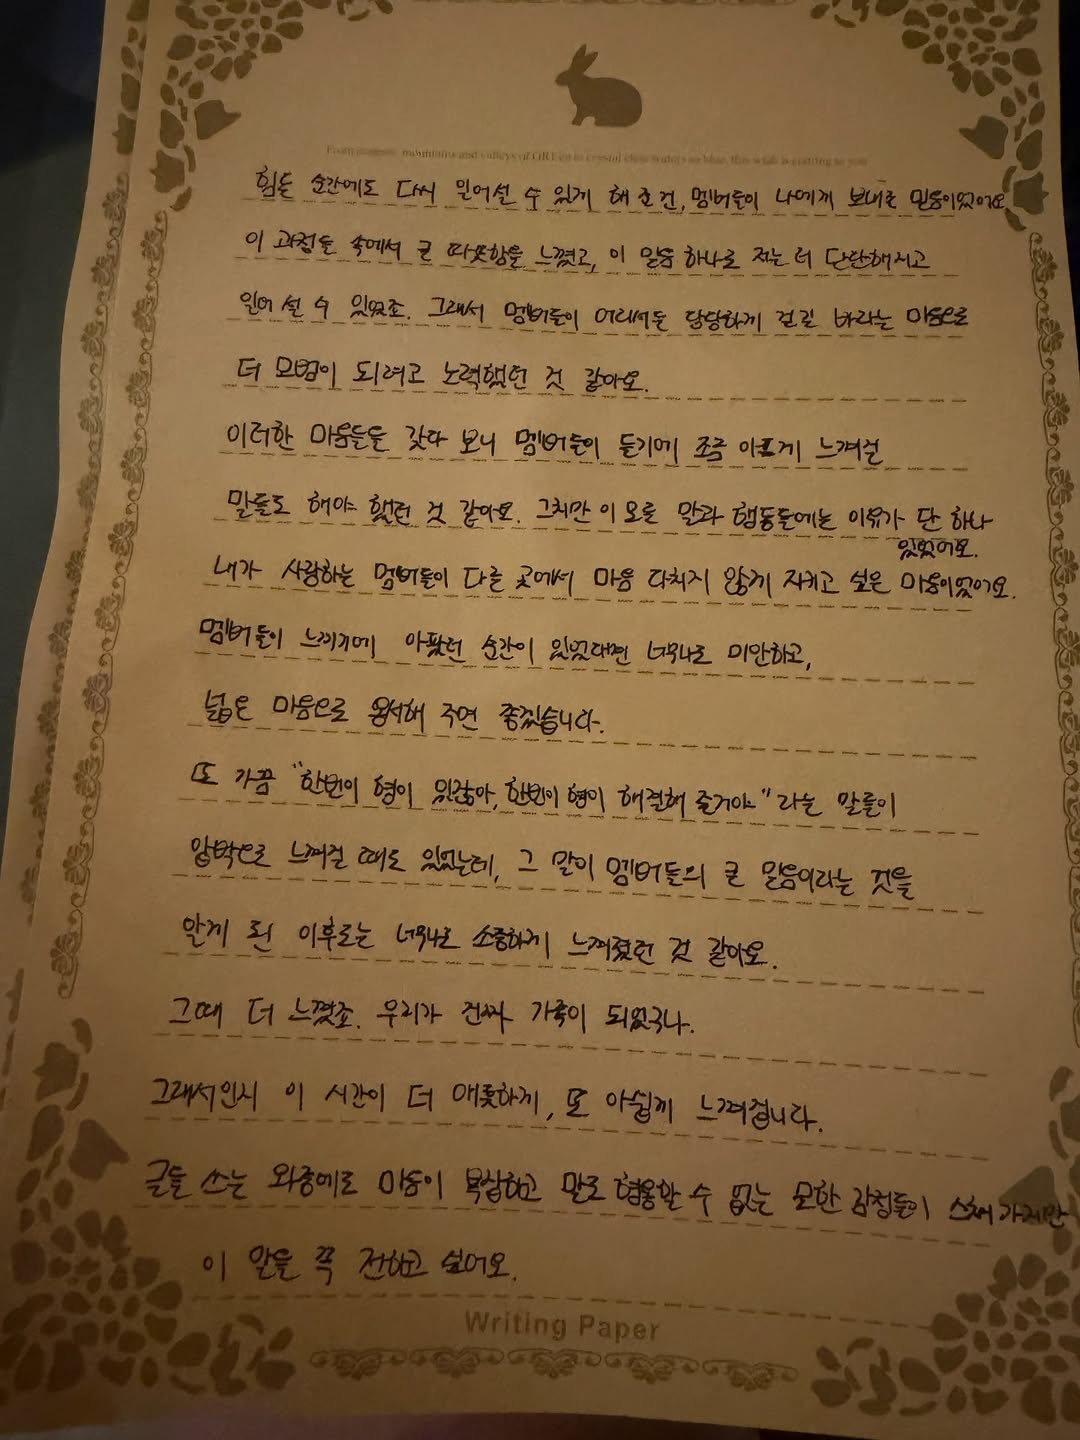 힘든 순간에도 다시 일어설 수 있게 해 준 건, 멤버들이 나에게 보내준 믿음이었어요
이 과정들 속에서 큰 따뜻함을 느꼈고, 이 믿음 하나로 저는 더 단단해지고
일어 설 수 있었죠. 그래서 멤버들이 어디서든 당당하게 걷길 바라는 마음으로
더 모범이 되려고 노력했던 것 같아요.
이러한 마음들을 갖다 보니 멤버들이 듣기에 조금 아프게 느껴질
말들도 해야 했던 것 같아요. 그치만 이 모든 말과 행동들에는 이유가 단 하나
있었어요.
내가 사랑하는 멤버들이 다른 곳에서 마음 다치지 않게 지키고 싶은 마음이었어요.
멤버들이 느끼기에 아팠던 순간이 있었다면 너무나도 미안하고,
넓은 마음으로 용서해 주면 좋겠습니다.
또 가끔 "한빈이 형이 있잖아, 한빈이 형이 해결해 줄거야" 라는 말들이
압박으로 느껴질 때도 있었는데, 그 말이 멤버들의 큰 믿음이라는 것을
알게 된 이후로는 너무나도 소중하게 느껴졌던 것 같아요.
그때 더 느꼈죠. 우리가 진짜 가족이 되었구나.
그래서인지 이 시간이 더 애틋하게, 또 아쉽게 느껴집니다.
글을 쓰는 와중에도 마음이 복잡하고 말로 형용할 수 없는 묘한 감정들이 스쳐 가지만
이 말을 꼭 전하고 싶어요.
Writing Paper